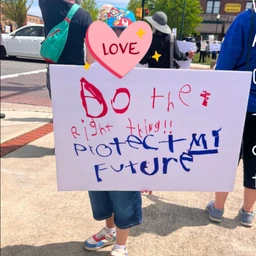 LOVE
Do the
Right thing!!
PROtECT MY
FUTURE